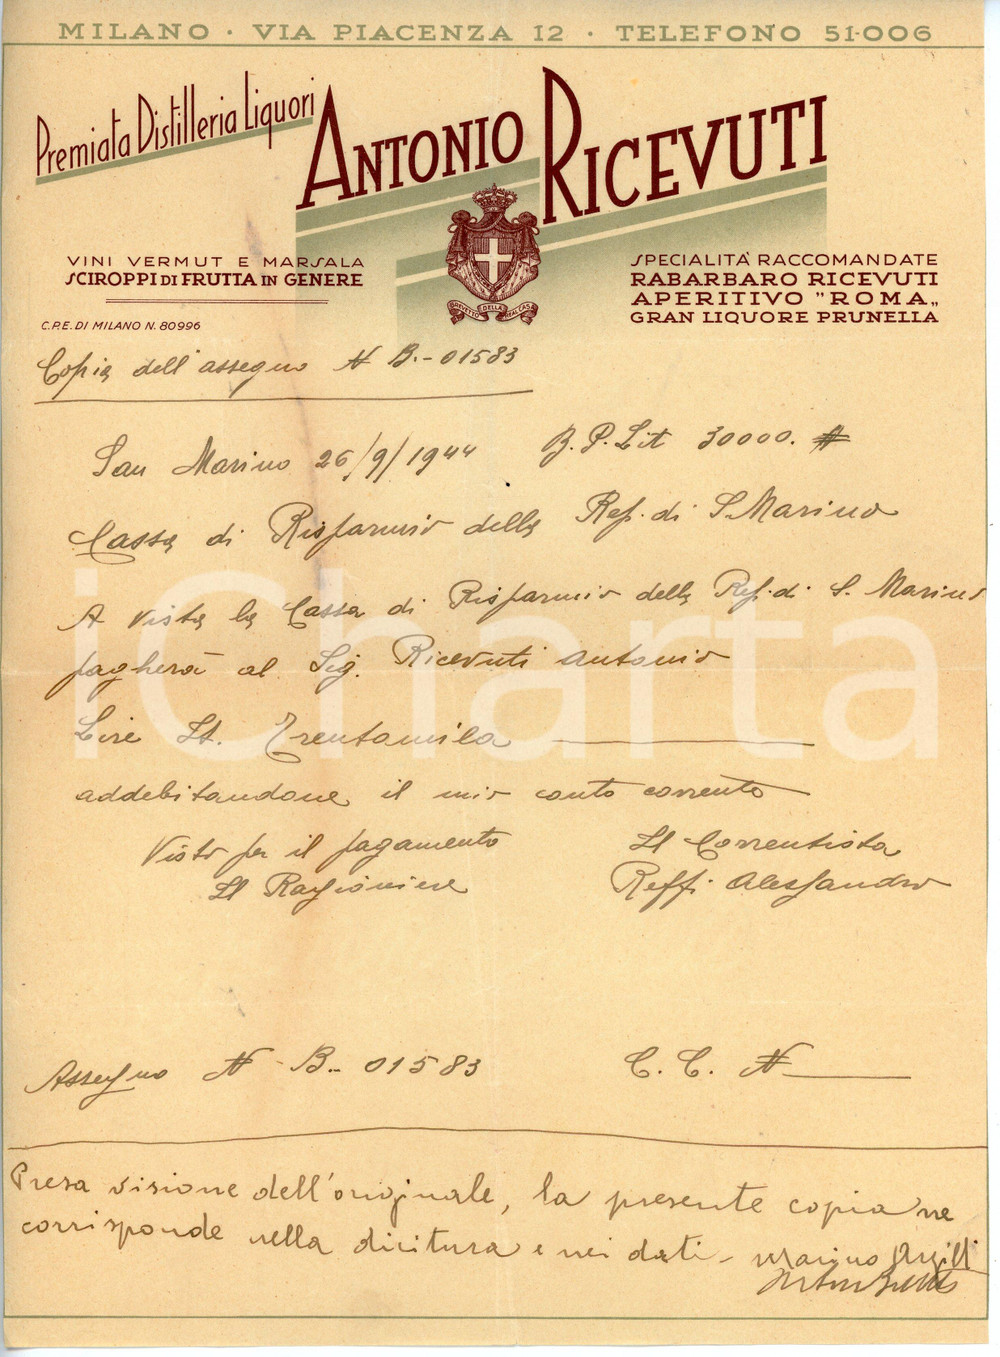 MILANO · VIA PIACENZA 12 · TELEFONO 51-006
Premiata Distilleria Liquori
ANTONIO RICEVUTI
VINI VERMUT E MARSALA
SCIROPPI DI FRUTTA IN GENERE
C.P.E. DI MILANO N. 80996
BREVETTO DELLA REAL CASA
SPECIALITÀ RACCOMANDATE
RABARBARO RICEVUTI
APERITIVO "ROMA"
GRAN LIQUORE PRUNELLA
Copia dell'assegno N B.-01583
San Marino 26/9/1944 B.P. Lit 30000.#
Cassa di Risparmio della Rep. di S. Marino
A vista la Cassa di Risparmio della Rep. di S. Marino
pagherà al Sig. Ricevuti Antonio
Lire It. Trentamila
addebitandone il mio conto corrente
Visto per il pagamento
Il Ragioniere
Il Correntista
Reffi Alessandro
Assegno N - B- 01583 C. C. N
Presa visione dell'originale, la presente copia ne
corrisponde nella dicitura e nei dati - Marino
iCharta